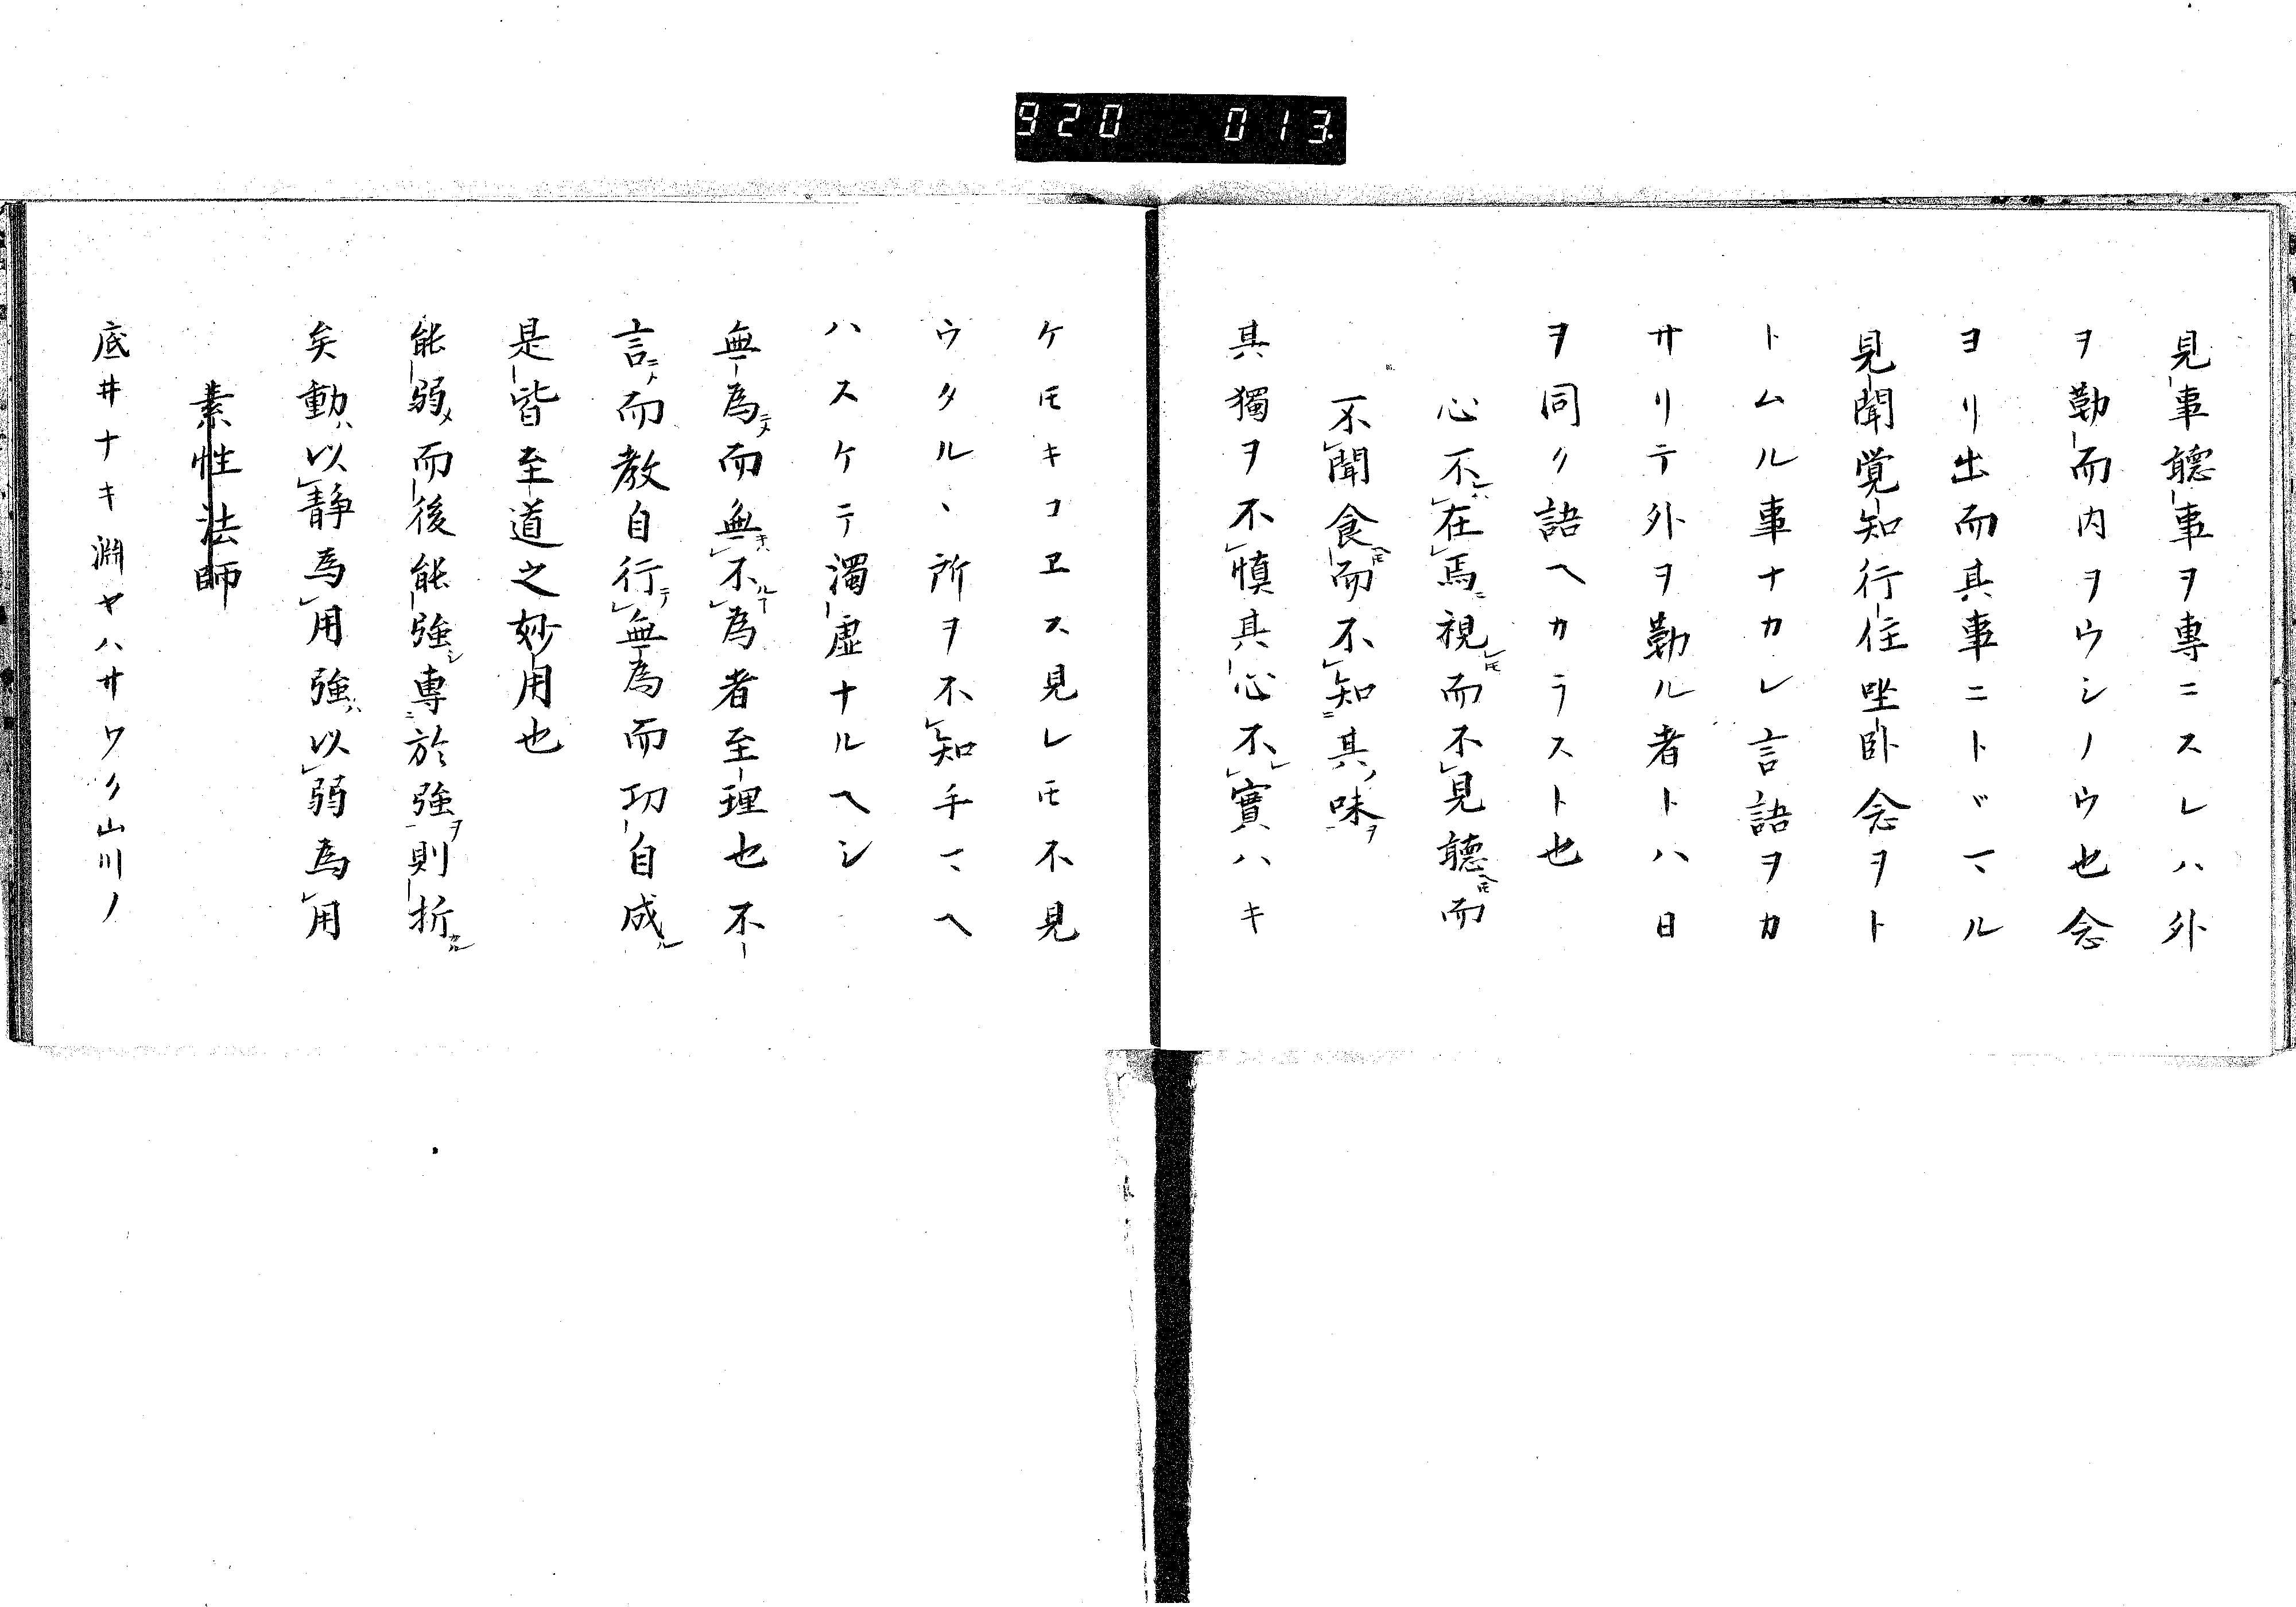 920 013
見事聴事ヲ専ニスレハ外
ヲ勤而内ヲウシノウ也念
ヨリ出而其事ニトヾマル
見聞覚知行住坐臥念ヲト
トムル事ナカレ言語ヲカ
サリテ外ヲ勤ル者トハ日
ヲ同ク語ヘカラスト也
心不在焉視而不見聴而
不聞食而不知其味
其獨ヲ不慎其心不實ハキ
ケ𪜈キコヱス見レ𪜈不見
ウタルヽ所ヲ不知手マヘ
ハスケテ濁虚ナルヘシ
無為而無不為者至理也不
言而教自行無為而功自成
是皆至道之妙用也
能弱而後能強専於強則折
矣動以静為用強以弱為用
素性法師
底井ナキ淵ヤハサワク山川ノ